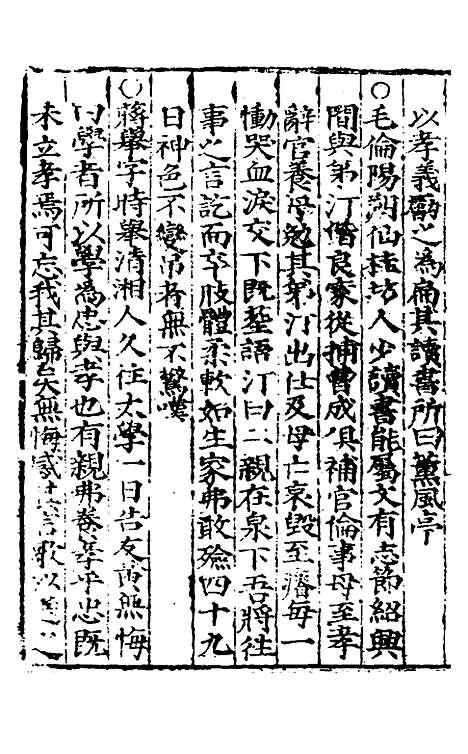 以孝義勵之為扁其讀書所曰薰風亭
○毛倫陽朔仙桂坊人少讀書能屬文有志節紹興
間與弟汀偕良家從捕曹成俱補官倫事母至孝
辭官養母勉其弟汀出仕及母亡哀毀至瘠每一
慟哭血淚交下既塟語汀曰二親在泉下吾將往
事之言訖而卒肢體柔軟如生家弗敢殮四十九
日神色不變吊者無不驚嘆
○蔣舉字時舉清湘人久住太學一日告友黃無悔
曰學者所以學為忠與孝也有親弗養孝乎忠既
未立孝焉可忘我其歸矣無悔感其言歌以送之